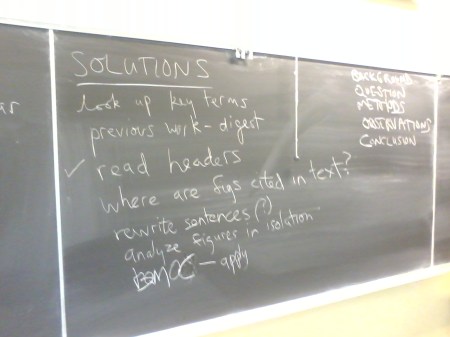 SOLUTIONS
look up key terms
previous work - digest
✓ read headers
where are figs cited in text?
rewrite sentences (?)
analyze figures in isolation
— apply
BACKGROUND
QUESTION
METHODS
OBSERVATIONS
CONCLUSION